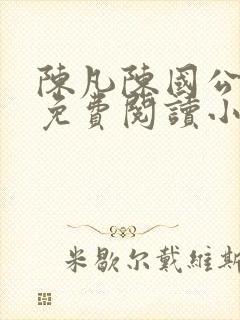 陳凡陳國公
免費閱讀小
米歇尔戴維斯